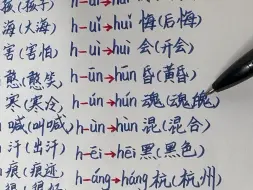 孩(孩子)
海(大海)
害(害怕)
憨(憨笑)
寒(寒冷)
喊(叫喊)
汗(出汗)
痕(痕迹)
h-uǐ→huǐ 悔(后悔)
h-uì→huì 会(开会)
h-ūn→hūn 昏(黄昏)
h-ún→hún 魂(魂魄)
h-ùn→hùn 混(混合)
h-ēi→hēi 黑(黑色)
h-áng→háng 杭(杭州)